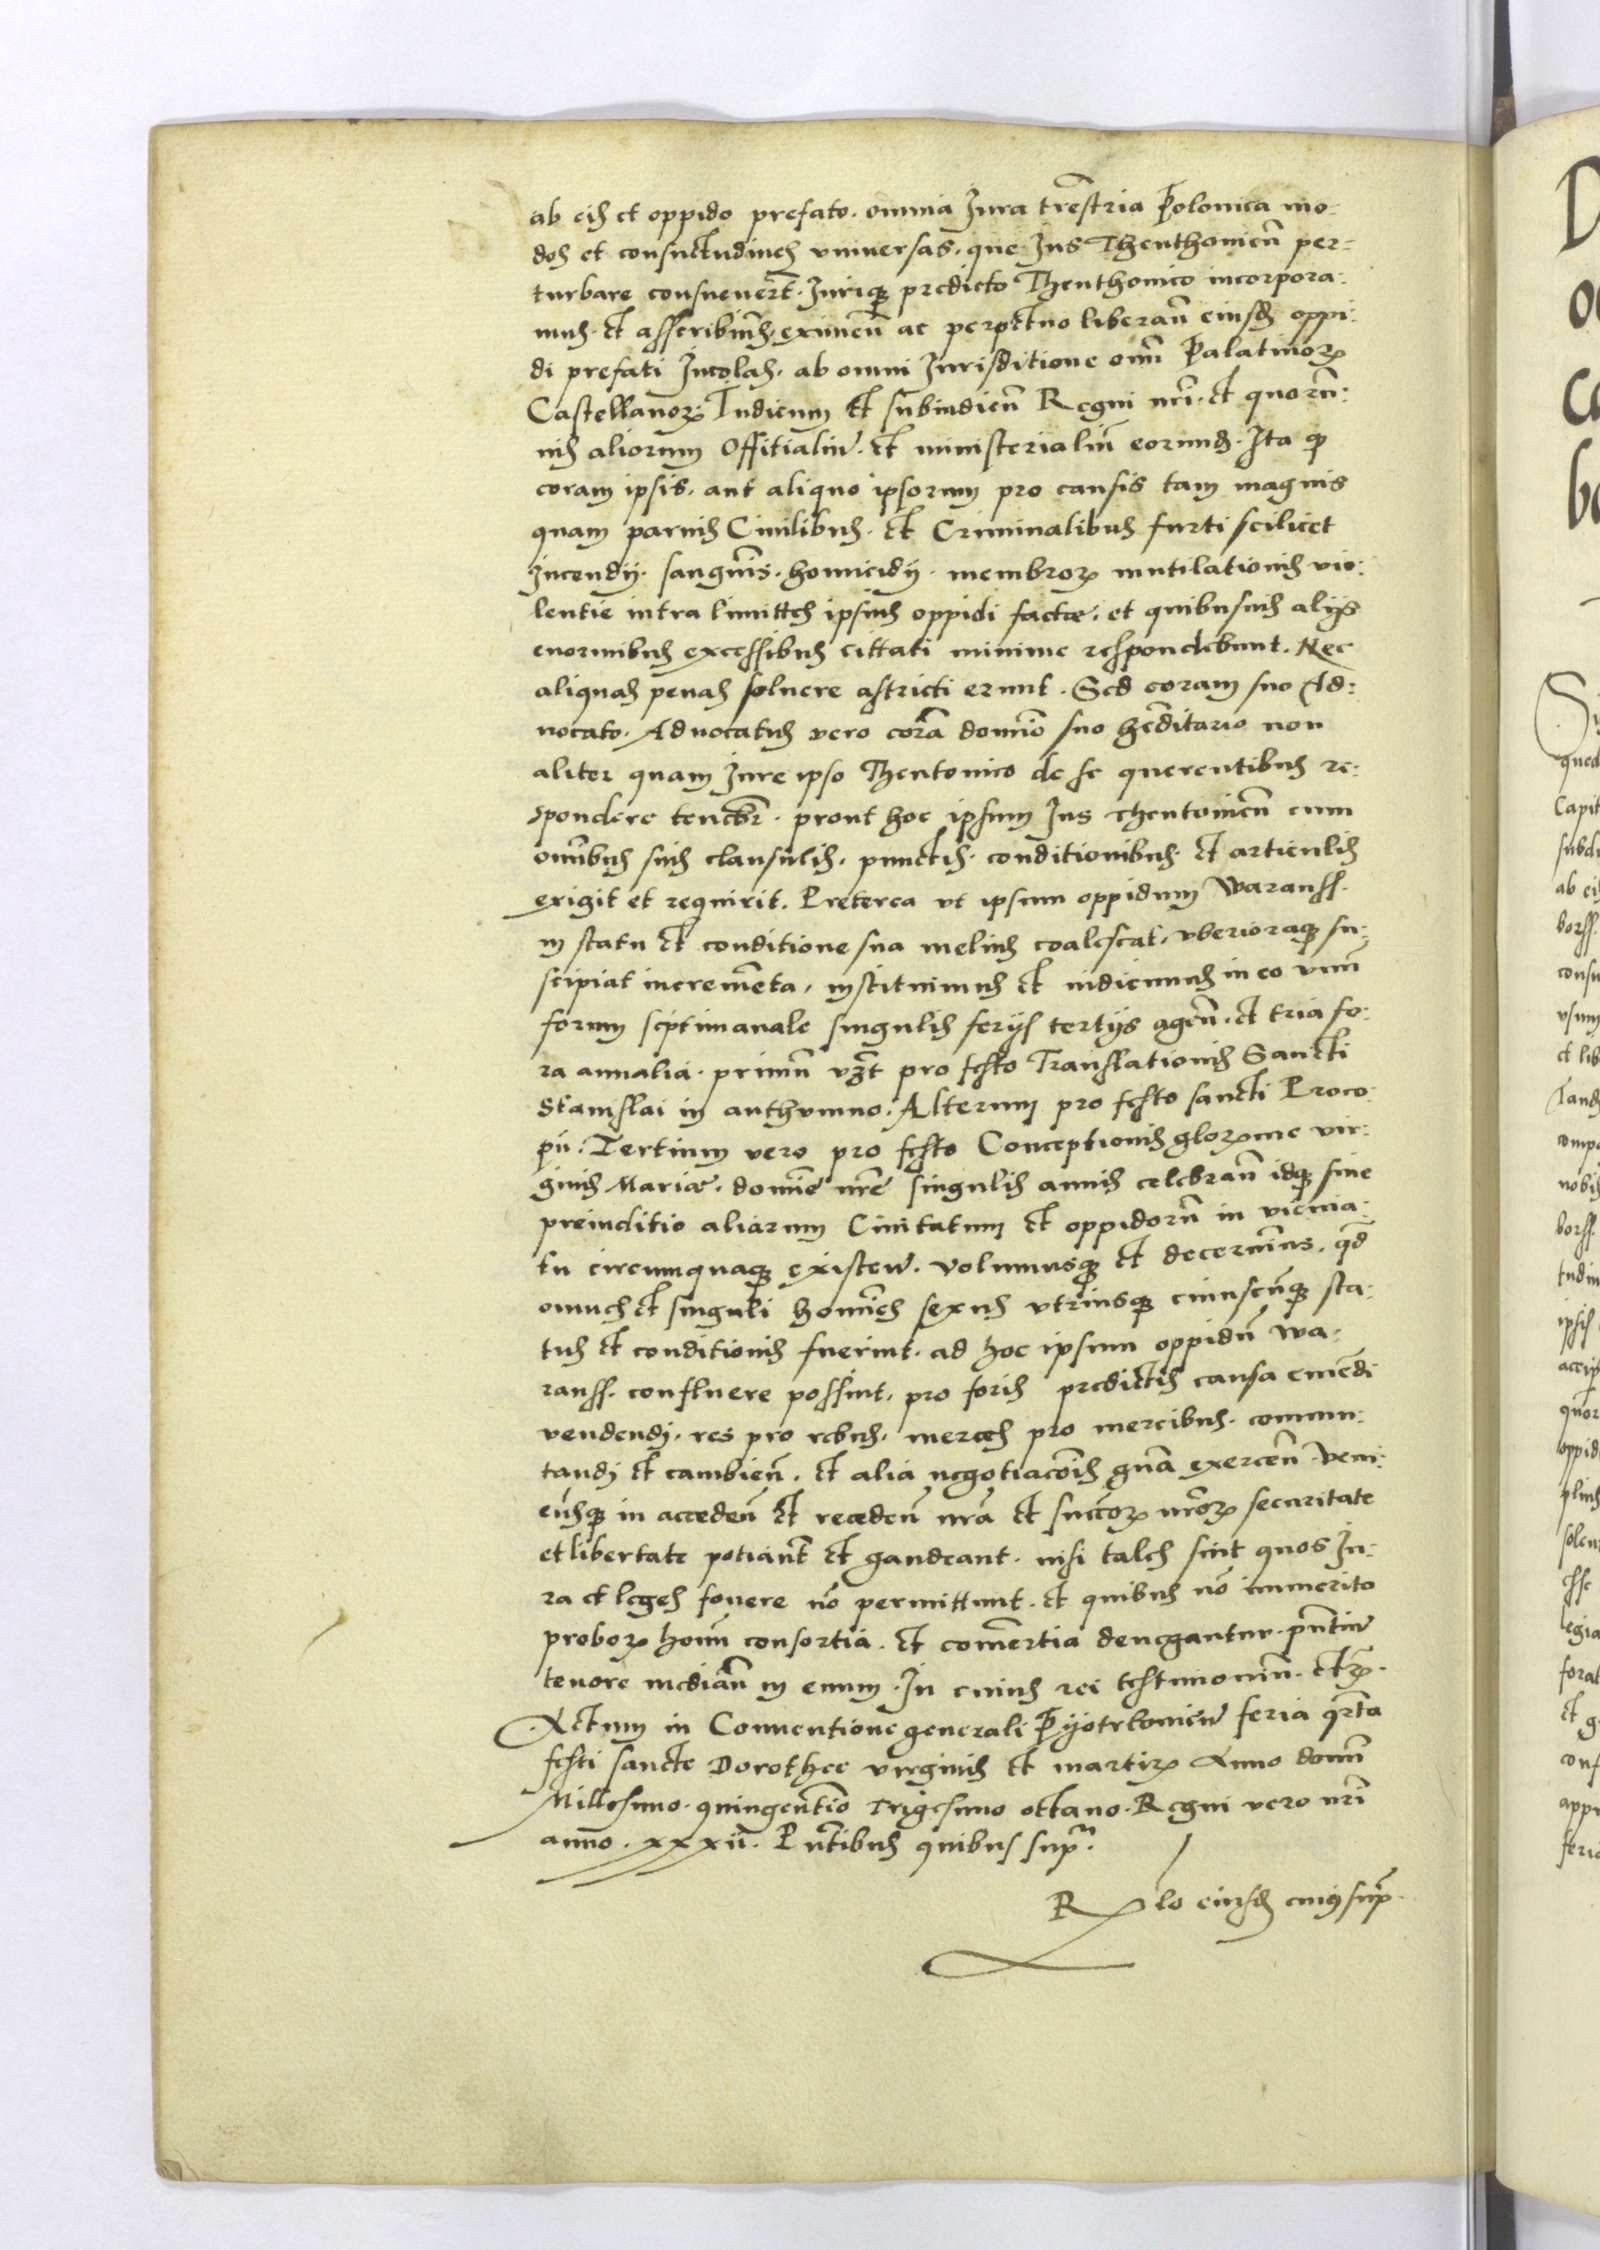 ab eis et oppido prefato. omnia Jura trestria Polonica mo:
dos et consuetudines universas. que Jus Thenthonicu per:
turbare consuevert. Juriq predicto Thenthonico incorpora:
mus. et asscribims, eximen ac perpetuo liberan eiusd oppi:
di prefati Incolas. ab omni Jurisditione omn Palatinor
Castellanor. Iudicum et subiudicu Regni nri. et quorū:
vis aliorum Offitialiu. et ministerialiu eorund. Ita q
coram ipsis. aut aliquo ipsorum pro causis tam magnis
quam parvis Civilibus. et Criminalibus furti scilicet
Incendij. sangvis. homicidij. membror mutilationis vio:
lentie intra limittes ipsius oppidi factæ. et quibusvis alijs
enormibus excessibus cittati minime respondebunt. Nec
aliquas penas solvere astricti erunt. Sed coram suo Ad:
vocato. Advocatus vero corā domīo suo hēditario non
aliter quam Jure ipso Thentonico de se querentibus re:
spondere tenebr. prout hoc ipsum Jus Thentonicū cum
omībus suis clausulis. punctis. conditionibus. et articulis
exigit et requirit. Preterea ut ipsum oppidum Waranss.
in statu et conditione sua melius coalescat. uberioraq su:
scipiat incremēta, instituimus et indicimus in eo unū
forum septimanale singulis ferijs tertijs agen. et tria fo:
ra annalia. primū vzt pro festo Translationis Sancti
Stanislai in authumno. Alterum pro festo sancti Proco:
pii. Tertium vero pro festo Conceptionis gloriosme vir:
ginis Mariæ. domīe nrē singulis annis celebran idq sine
preiuditio aliarum Civitatum et oppidorū in vicinia:
tu circumquaq existen. Volumusq et decernimus. qd
omnes et singuli homīes sexus utriusq cuiuscūq sta:
tus et conditionis fuerint. ad hoc ipsum oppidū Wa:
ranss. confluere possint. pro foris predictis causa emēdi
vendendi. res pro rebus. merces pro mercibus. commu:
tandi et cambien. et alia negotiacōis gn̄a exercen Veni:
en̄sq in acceden et receden nrā et succor nror securitate
et libertate potiant et gaudeant. nisi tales sint quos Ju:
ra et leges fovere nō permittunt. et quibus nō immerito
probor homī consortia. et comertia denegantur. pntiu
tenore median in evum. In cuius rei testimoniū. etc.
Actum in Conventione generali Pyotrkovien feria qrta
festi sancte Dorothee virginis et martir Anno domī
Millesimo. quingentīo trigesimo octavo. Regni vero nri
anno. xxxii. Pntibus quibus sup.
R lo eiusd cuiꝰ sup.